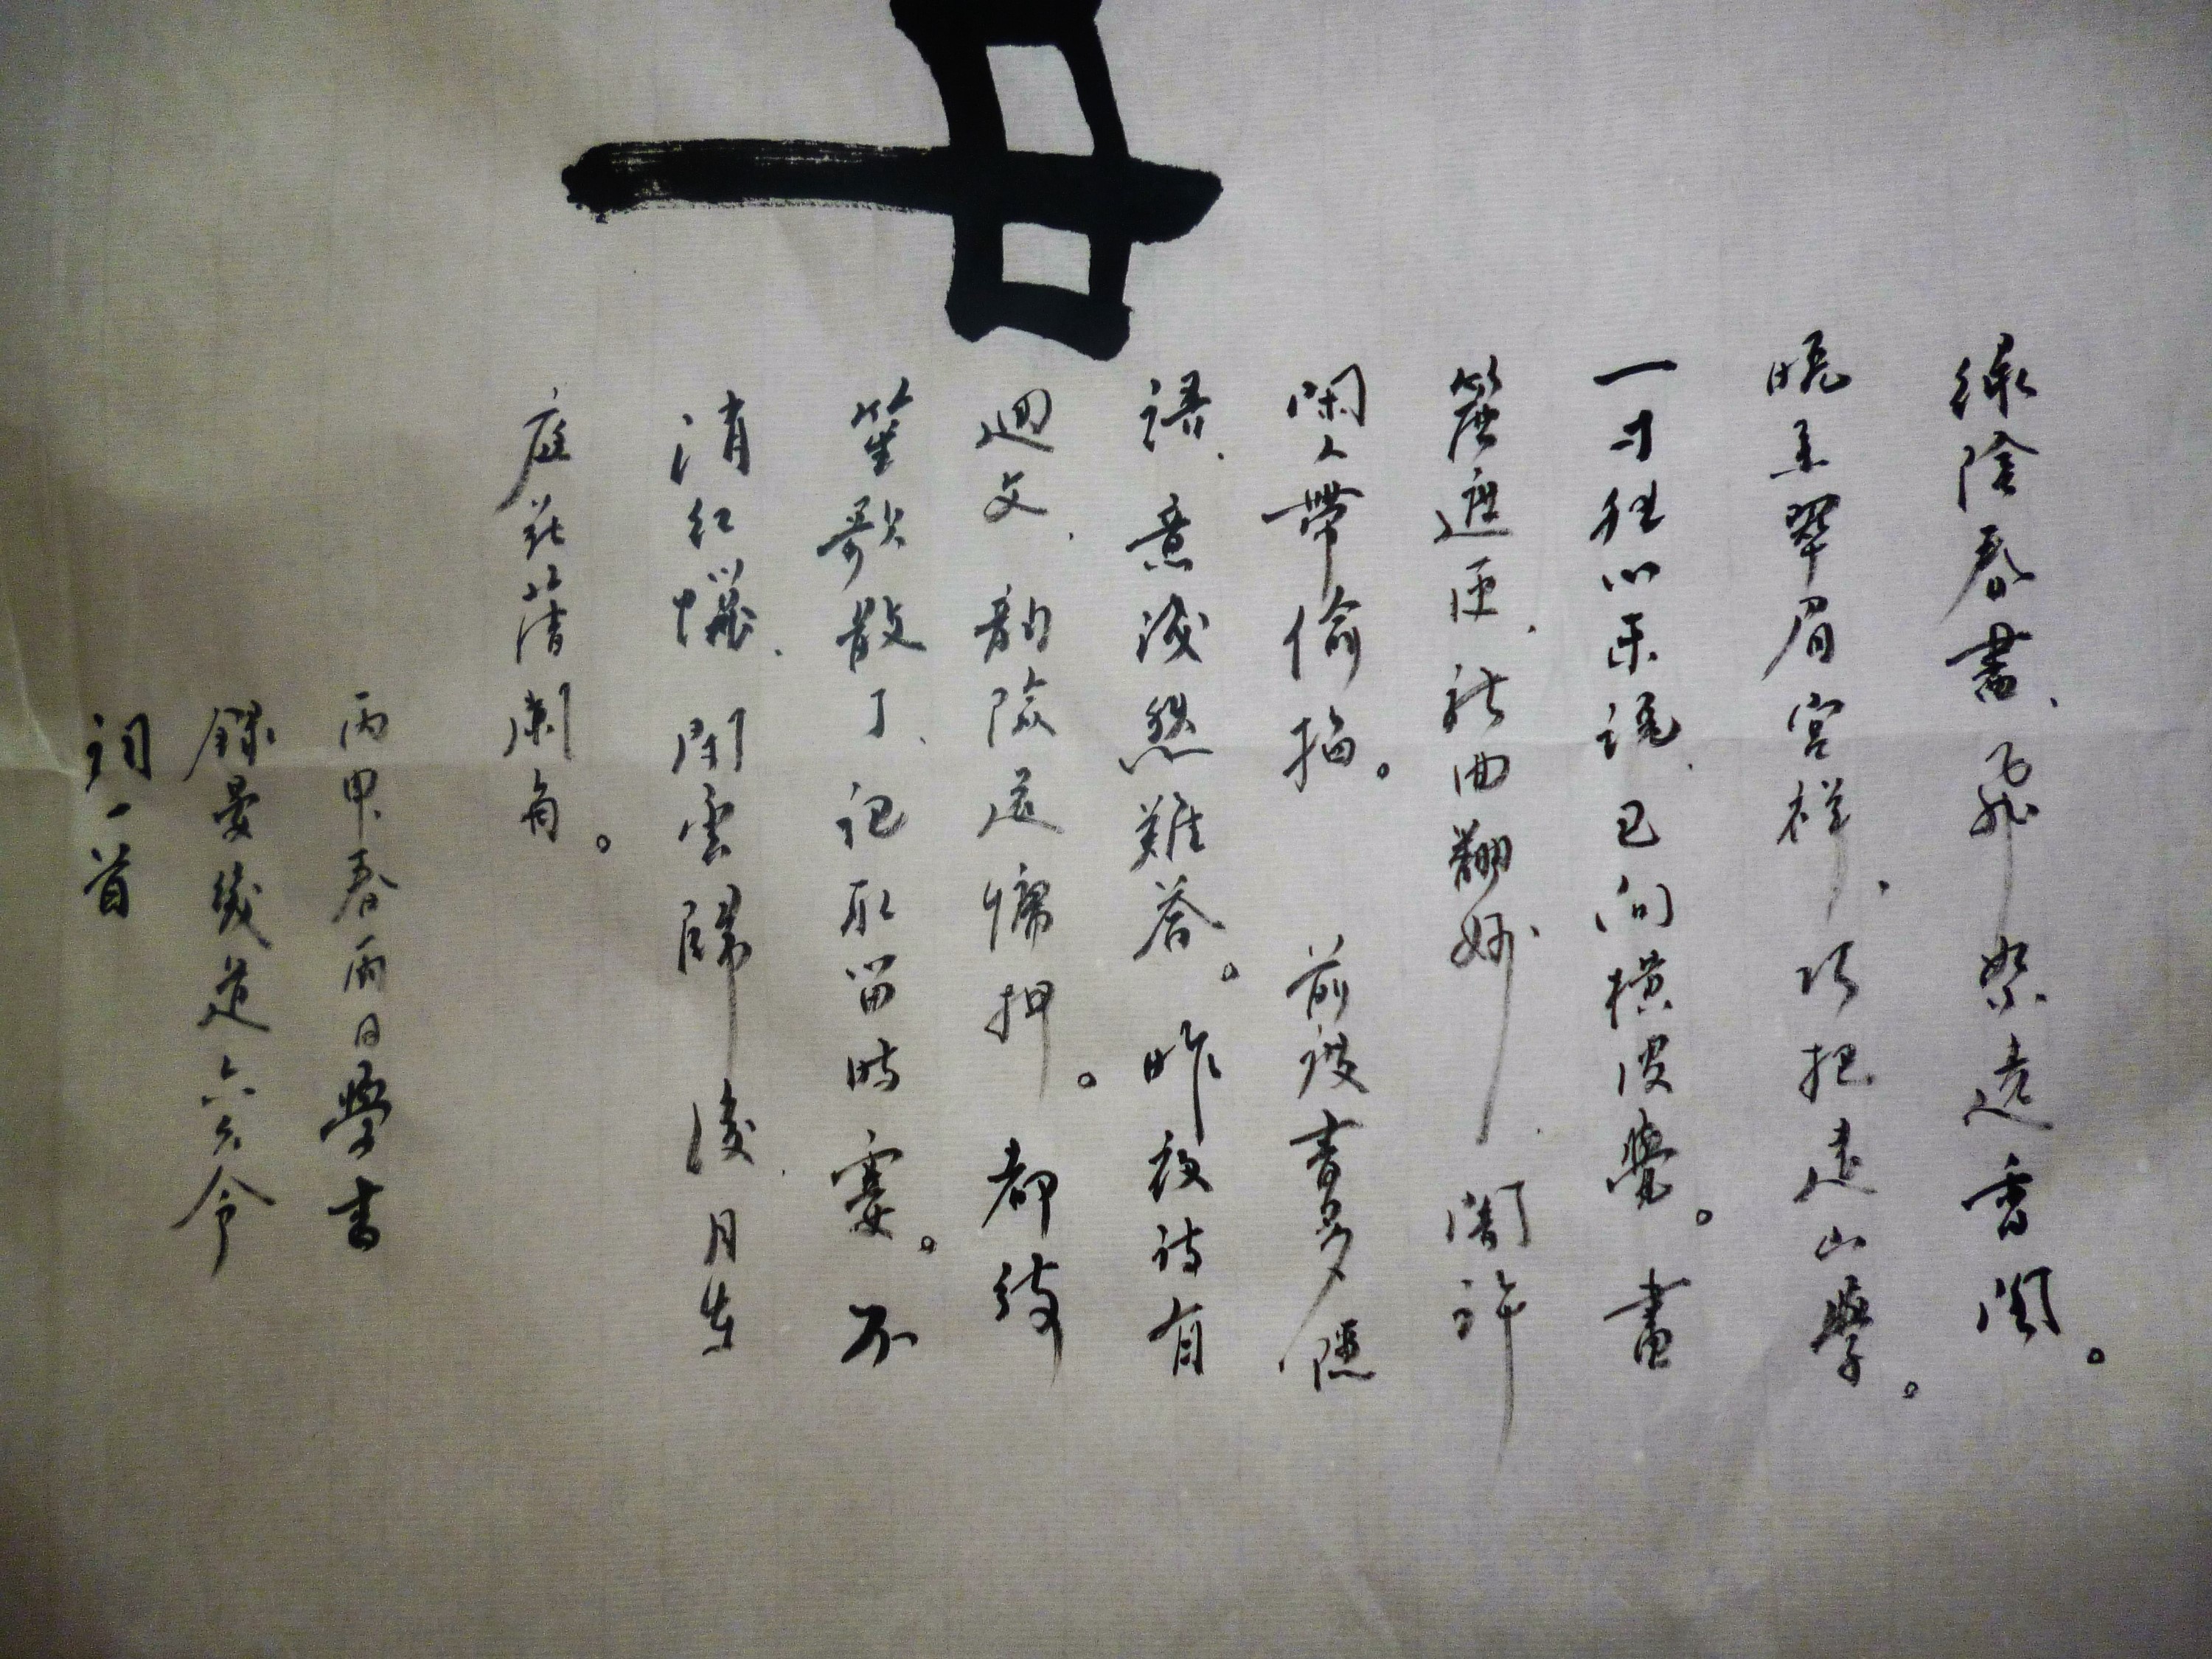 綠陰春盡、飛絮遶香閣。
晚來翠眉宮樣、巧把遠山學。
一寸狂心未說、已向橫波覺。畫
簾遮匝、新曲翻妙、闇許
閑人帶偷掐。前度書多隱
語、意淺愁難答。昨夜詩有
迴文、韵險還慵押。都待
笙歌散了、記取留時霎。不
消紅蠟、閑雲歸後、月在
庭花舊闌角。
丙申春雨日學書
錄晏幾道六幺令
詞一首